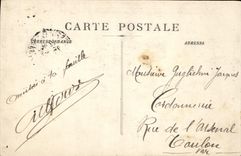 CARTE POSTALE
CORRESPONDANCE
ADRESSE
Monsieur Guglielmi Jacques
Cordonnerie
Rue de l'Arsenal
Toulon
Var
famille